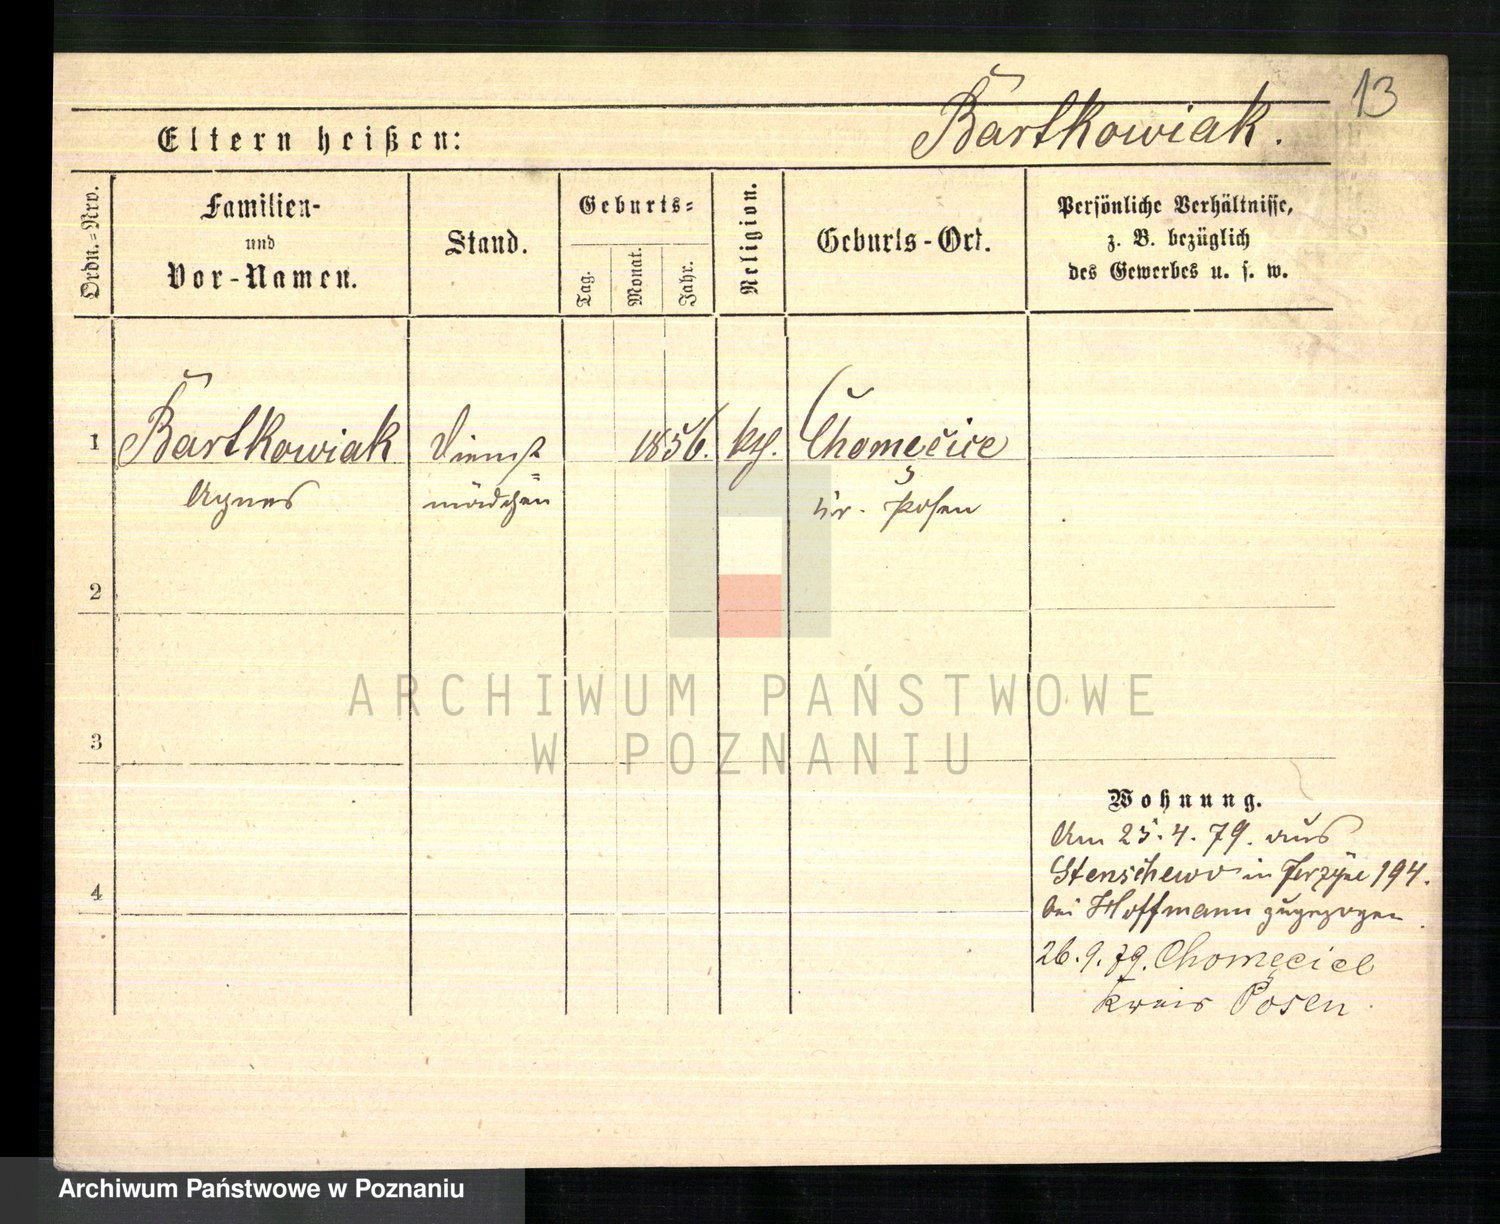 13
Eltern heißen: Bartkowiak.
Ordn.-Nro.
Familien-
und
Vor-Namen.
Stand.
Geburts-
Tag.
Monat.
Jahr.
Religion.
Geburts-Ort.
Persönliche Verhältnisse,
z. B. bezüglich
des Gewerbes u. s. w.
1 Bartkowiak Dienst- 1856. kth. Chomęcice
Agnes mädchen Kr. Posen
2
3
4
ARCHIWUM PAŃSTWOWE
W POZNANIU
Wohnung.
Am 25.4.79. aus
Stenschewo in 194.
bei Hoffmann zugezogen
26.9.79. Chomęcice
Kreis Posen.
Archiwum Państwowe w Poznaniu